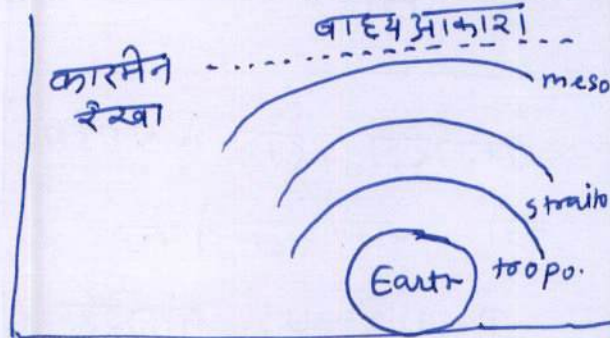 बाह्य आकाश
कारमेन
रेखा
meso
straito
tropo.
Earth